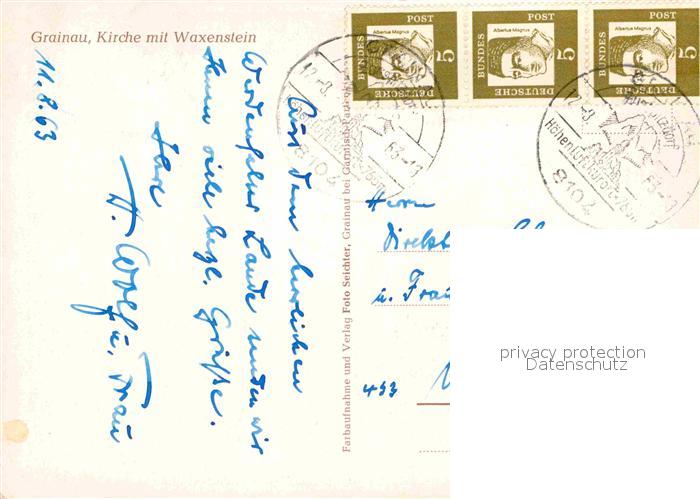 Grainau, Kirche mit Waxenstein
11.8.63
Aus dem herrlichen
Werdenfelser Lande senden wir
Ihnen viele herzl. Grüße.
Ihre
H. Wolf u. Frau
Farbaufnahme und Verlag Foto Seichter, Grainau bei Garmisch-Partenkirchen
Albertus Magnus
DEUTSCHE BUNDESPOST
5
Albertus Magnus
DEUTSCHE BUNDESPOST
5
Albertus Magnus
DEUTSCHE BUNDESPOST
5
12.-8.63-11
8104
12.-8.63
Höhenluftkurort
8104
Herrn
Direkt
u. Frau
433
privacy protection
Datenschutz